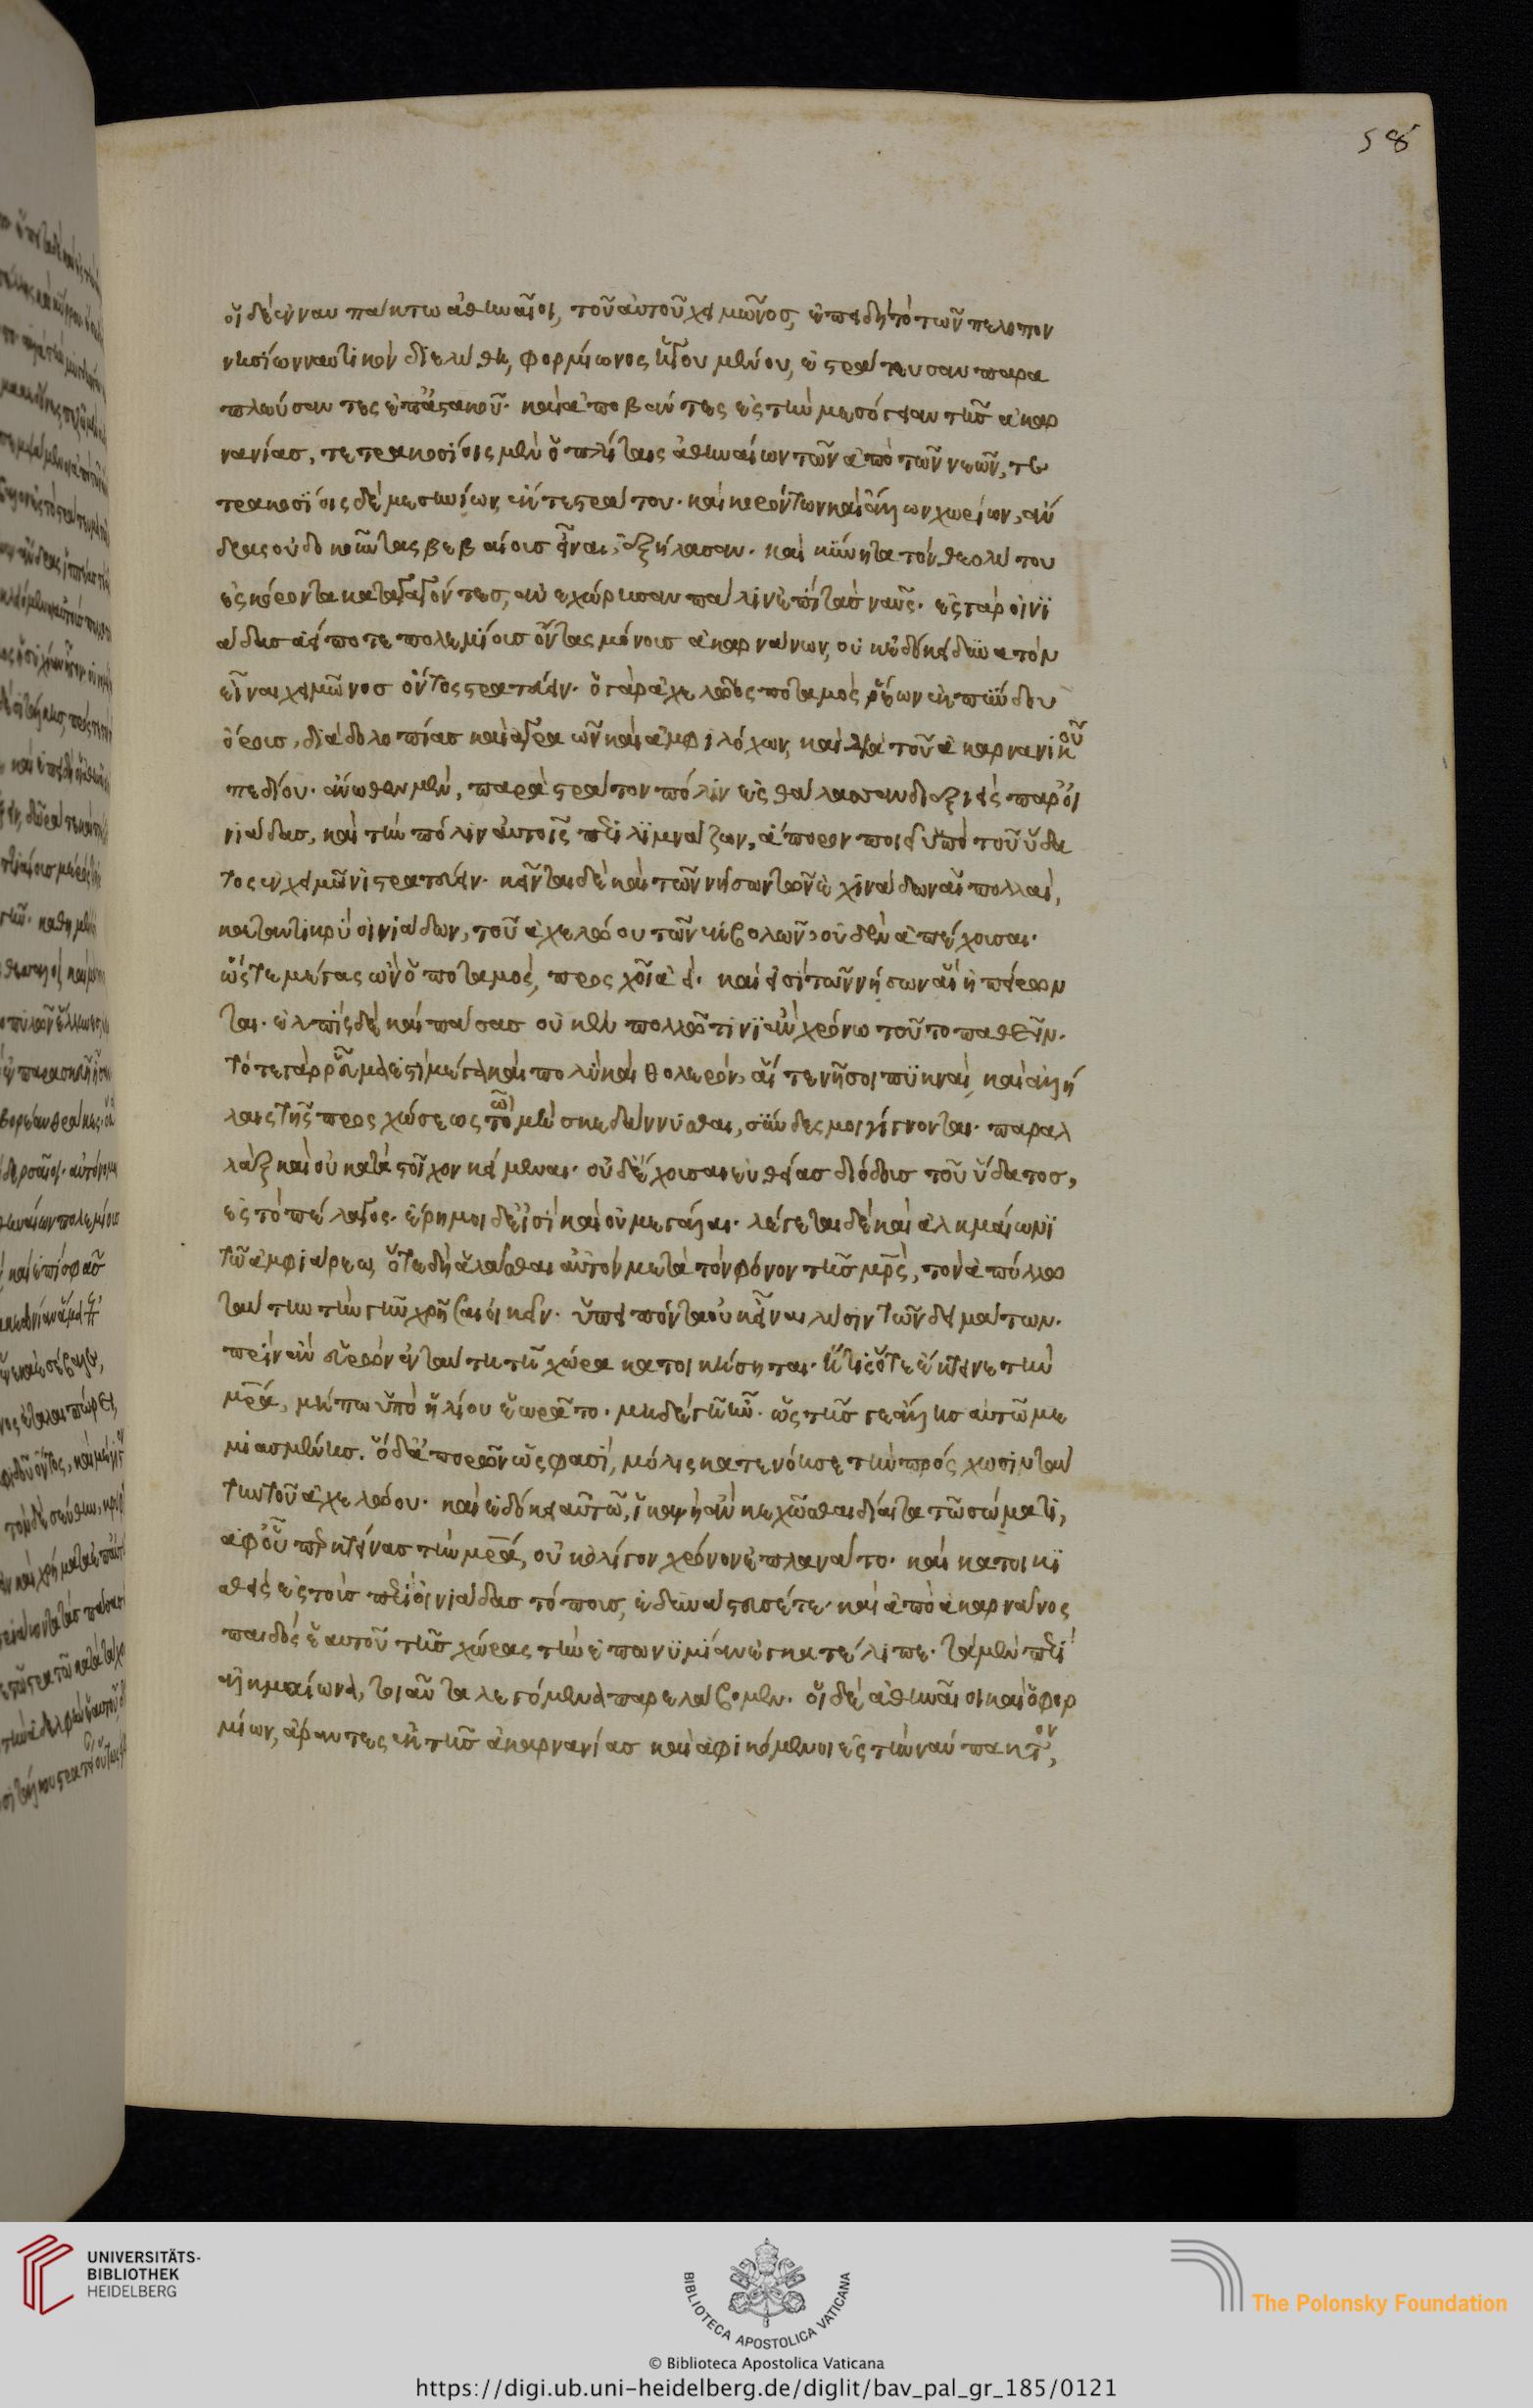 58
οἱ δὲ ἐν ναυπάκτω ἀθηναῖοι, τοῦ αὐτοῦ χειμῶνος, ἐπειδὴ τὸ τῶν πελοπον
νησίων ναυτικὸν διελύθη, φορμίωνος ἡγουμένου, ἐστράτευσαν παρα
πλεύσαντες ἐπ' ἀστακοῦ· καὶ ἀποβάντες ἐς τὴν μεσόγειαν τῆς ἀκαρ
νανίας, τετρακοσίοις μὲν ὁπλίταις ἀθηναίων τῶν ἀπὸ τῶν νεῶν, τε
τρακοσίοις δὲ μεσηνίων, ἔκ τε στράτου· καὶ κορόντων καὶ ἄλλων χωρίων, ἄν
δρας οὐ δοκοῦντας βεβαίους εἶναι, ἐξήλασαν· καὶ κύνητα τὸν θεολύτου
ἐς κόροντα καταγαγόντες, ἀνεχώρησαν πάλιν ἐπὶ τὰς ναῦς· ἐς γὰρ οἰνι
άδας αἰεί ποτε πολεμίους ὄντας μόνους ἀκαρνάνων, οὐκ ἐδόκει δυνατὸν
εἶναι χειμῶνος ὄντος στρατεύειν· ὁ γὰρ ἀχελῶος ποταμὸς ῥέων ἐκ πίνδου
ὄρους, διὰ δολοπίας καὶ ἀγραῶν καὶ ἀμφιλόχων, καὶ διὰ τοῦ ἀκαρνανικοῦ
πεδίου· ἄνωθεν μὲν, παρὰ στράτον πόλιν ἐς θάλασσαν διεξιεὶς παρ' οἰ
νιάδας, καὶ τὴν πόλιν αὐτοῖς περιλιμνάζων, ἄπορον ποιεῖ ὑπὸ τοῦ ὕδα
τος ἐν χειμῶνι στρατεύειν· κεῖνται δὲ καὶ τῶν νήσων τῶν ἐχινάδων αἱ πολλαί,
καταντικρὺ οἰνιάδων, τοῦ ἀχελώου τῶν ἐκβολῶν, οὐδὲν ἀπέχουσαι·
ὥστε μέγας ὢν ὁ ποταμός, προσχοῖ ἀεί· καὶ εἰσὶ τῶν νήσων αἳ ἠπείρων
ται· ἐλπὶς δὲ καὶ πάσας οὐκ ἐν πολλῶ τινι ἂν χρόνω τοῦτο παθεῖν·
τό τε γὰρ ῥεῦμά ἐστι μέγα καὶ πολὺ καὶ θολερόν, αἵ τε νῆσοι πυκναί, καὶ ἀλλή
λαις τῆς προσχώσεως τῶ μὲν σκεδάννυσθαι, σύνδεσμοι γίγνονται· παραλ
λὰξ καὶ οὐ κατὰ στοῖχον κείμεναι· οὐδ' ἔχουσαι εὐθείας διόδους τοῦ ὕδατος,
ἐς τὸ πέλαγος· ἐρῆμοι δ' εἰσὶ καὶ οὐ μεγάλαι· λέγεται δὲ καὶ ἀλκμαίωνι
τῶ ἀμφιάρεω, ὅτε δὴ ἀλᾶσθαι αὐτὸν μετὰ τὸν φόνον τῆς μρς, τὸν ἀπόλλω
ταύτην τὴν γῆν χρῆσαι οἰκεῖν· ὑπειπόντα οὐκ εἶναι λύσιν τῶν δειμάτων·
πρὶν ἂν εὑρὼν ἐν ταύτη τῆ χώρα κατοικήσηται· ἥτις ὅτε ἔκτεινε τὴν
μρα, μήπω ὑπὸ ἡλίου ἑωρᾶτο· μηδὲ γῆ ἦν· ὡς τῆς γε ἄλλης αὐτῶ με
μιασμένης. ὁ δ' ἀπορῶν ὥς φασί, μόλις κατενόησε τὴν πρόσχωσιν ταύ
την τοῦ ἀχελώου· καὶ ἐδόκει αὐτῶ, ἱκανὴ ἂν κεχῶσθαι δίαιτα τῶ σώματι,
ἀφ' οὗ περ κτείνας τὴν μρα, οὐκ ὀλίγον χρόνον ἐπλανᾶτο· καὶ κατοικι
σθεὶς ἐς τοὺς περὶ οἰνιάδας τόπους, ἐδυνάστευσέ τε καὶ ἀπὸ ἀκαρνάνος
παιδὸς ἑαυτοῦ τῆς χώρας τὴν ἐπωνυμίαν ἐγκατέλιπε· τὰ μὲν περὶ
ἀλκμαίωνα, τοιαῦτα λεγόμενα παρελάβομεν· οἱ δὲ ἀθηναῖοι καὶ ὁ φορ
μίων, ἄραντες ἐκ τῆς ἀκαρνανίας καὶ ἀφικόμενοι ἐς τὴν ναύπακτον,
UNIVERSITÄTS-
BIBLIOTHEK
HEIDELBERG
BIBLIOTECA APOSTOLICA VATICANA
© Biblioteca Apostolica Vaticana
The Polonsky Foundation
https://digi.ub.uni-heidelberg.de/diglit/bav_pal_gr_185/0121